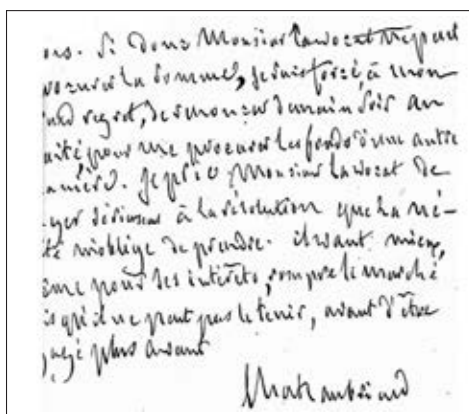 ons. Si donc Monsieur Lavocat ne peut
procurer la somme, je suis forcé, à mon
grand regret, de renoncer demain soir au
traité pour me procurer les fonds d'une autre
manière. Je prie Monsieur Lavocat de
à la résolution que la né-
té m'oblige de prendre. il vaut mieux,
ême pour ses intérêts, rompre le marché
is qu'il ne peut pas le tenir, avant d'être
gagé plus avant
Chateaubriand